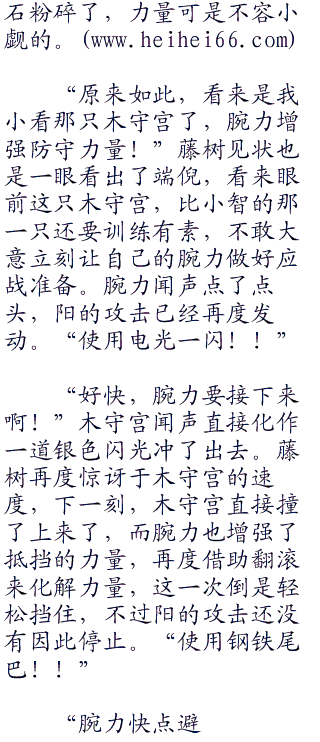 石粉碎了，力量可是不容小
觑的。(www.heihei66.com)
“原来如此，看来是我
小看那只木守宫了，腕力增
强防守力量！”藤树见状也
是一眼看出了端倪，看来眼
前这只木守宫，比小智的那
一只还要训练有素，不敢大
意立刻让自己的腕力做好应
战准备。腕力闻声点了点
头，阳的攻击已经再度发
动。“使用电光一闪！！”
“好快，腕力要接下来
啊！”木守宫闻声直接化作
一道银色闪光冲了出去。藤
树再度惊讶于木守宫的速
度，下一刻，木守宫直接撞
了上来了，而腕力也增强了
抵挡的力量，再度借助翻滚
来化解力量，这一次倒是轻
松挡住，不过阳的攻击还没
有因此停止。“使用钢铁尾
巴！！”
“腕力快点避